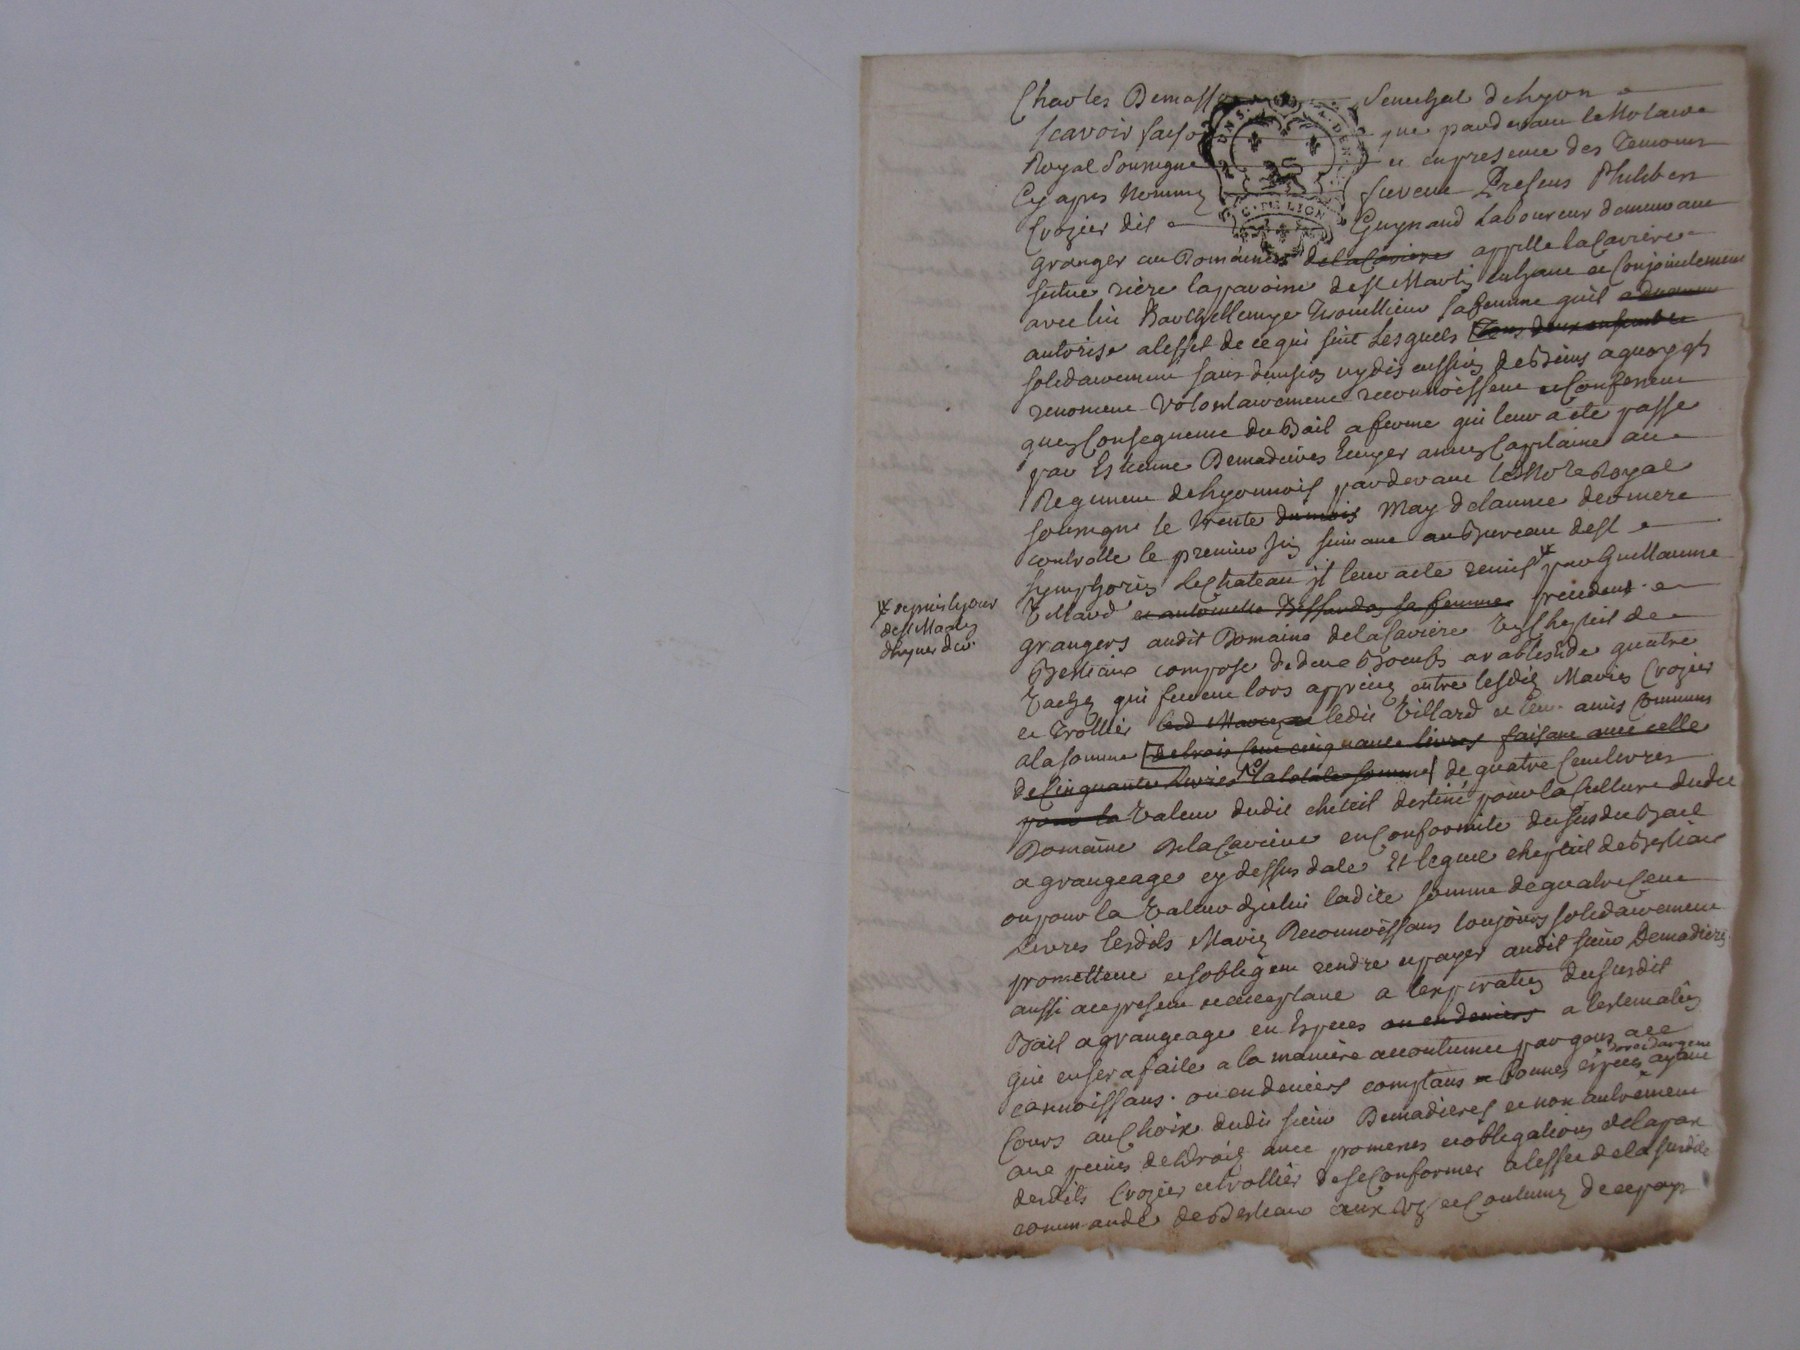 Charles Demasso Senechal de Lyon
scavoir faiso que pardevant le Notaire
Royal Soussigne et en presence des Temoins
Cy apres Nommez furent Presens Philibert
Crozier dit Guynand Laboureur demeurant
granger au Domaine de la Caviere appellé la Caviere
scitue riere la parroisse de St Martin en haut et Conjointement
avec luy Barthellemye Trouillieu sa femme quil
autorise a leffet de ce qui suit Lesquels Tous deux ensemble
solidairement sans division ny discussion de Biens a quoy ils
renoncent Volontairement reconnoissent et Confessent
quen Consequence du Bail a ferme qui leur a été passé
par Estienne Demadieres Ecuyer ancien Capitaine au
Regiment de Lyonnois pardevant le Nore Royal
soussigne le trente du mois May de lannee derniere
controllé le premier Juin suivant au Bureau de St
Symphorien Le Chateau il leur a été remis par Guillaume
Villard et antoinette sa femme precedens
grangers audit Domaine de la Caviere Un Chepteil de
Bestiaux composé de deux Boeufs arables et de quatre
Vaches qui furent lors appreciez entre lesdits Mariez Crozier
et Trollier ledit Villard et leurs amis Communs
a la somme de trois Cent cinquante livres faisant avec celle
de Cinquante livres la totale somme de quatre Cent livres
pour la Valeur dudit cheteil destiné pour la Culture dudit
Domaine De la Caviere en Conformité du susdit Bail
a grangeage cy dessus daté Et lequel cheptiel de Bestiaux
ou pour la Valeur dicelui ladite somme de quatre Cent
Livres lesdits Mariez Reconnoissans toujours solidairement
promettent et sobligent rendre et payer audit sieur Demadieres
aussi ace present et acceptant a lexpiration du susdit
Bail a grangeage en Especes ou en deniers a lestimation
qui en sera faite a la maniere accoutumée par gens ace
connoissans. ou en deniers comptans et bonnes especes ayant
Cours au Choix dudit sieur Demadieres et non autrement
aux peines de Droit avec promesses et obligations de la part
desdits Crozier et Trollier de se Conformer a leffet de la susdite
commande de Bestiaux aux Us et Coutumes de ce pays
depuis le jour
de St Martin
dhyver der.
G. DE LION